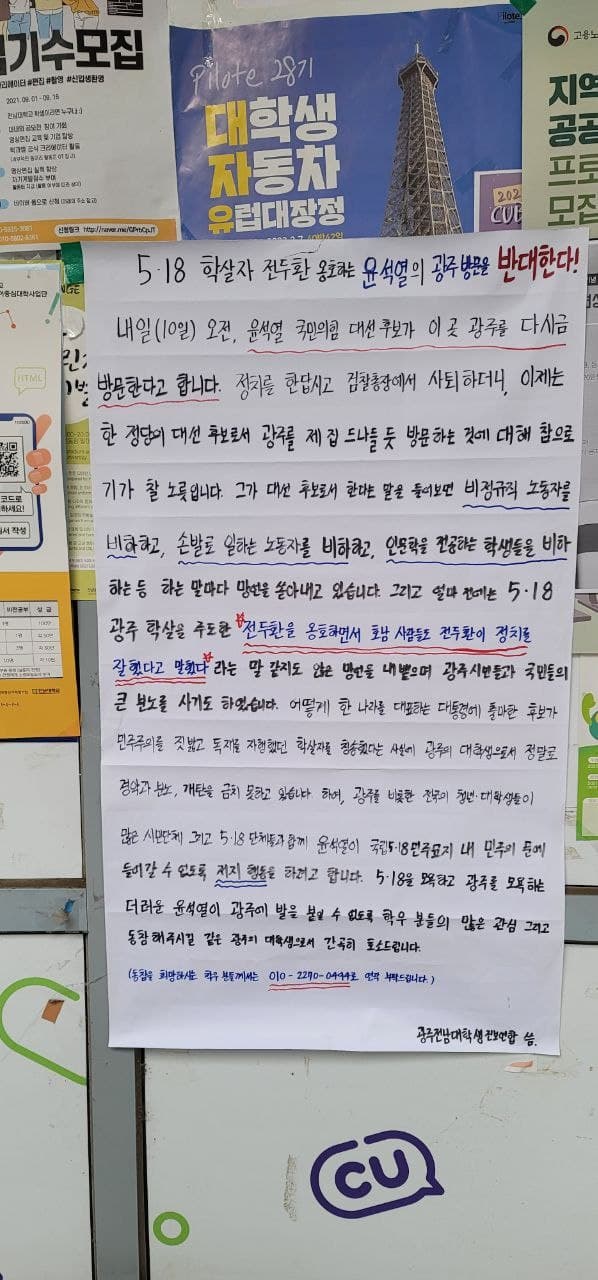 기수모집
#편집 #촬영 #신입생환영
2021. 09. 01 - 09. 15
신청링크 http://naver.me/GPrbCpJT
Pilote 28기
대학생
자동차
유럽대장정
고용노
지역
공공
프로
모집
HTML
5·18 학살자 전두환 옹호하는 윤석열의 광주방문을 반대한다!
내일(10일) 오전, 윤석열 국민의힘 대선후보가 이 곳 광주를 다시금
방문한다고 합니다. 정치를 한답시고 검찰총장에서 사퇴하더니, 이제는
한 정당의 대선 후보로서 광주를 제 집 드나들 듯 방문하는 것에 대해 참으로
기가 찰 노릇입니다. 그가 대선 후보로서 한다는 말을 들어보면 비정규직 노동자를
비하하고, 손발로 일하는 노동자를 비하하고, 인문학을 전공하는 학생들을 비하
하는 등 하는 말마다 망언을 쏟아내고 있습니다. 그리고 얼마 전에는 5·18
광주 학살을 주도한 "전두환을 옹호하면서 호남 사람들도 전두환이 정치를
잘했다고 말했다" 라는 말 같지도 않은 망언을 내뱉으며 광주시민들과 국민들의
큰 분노를 사기도 하였습니다. 어떻게 한 나라를 대표하는 대통령에 출마한 후보가
민주주의를 짓밟고 독재를 자행했던 학살자를 칭송했다는 사실에 광주의 대학생으로서 정말로
경악과 분노, 개탄을 금치 못하고 있습니다. 하여, 광주를 비롯한 전국의 청년·대학생들이
많은 시민단체 그리고 5·18 단체들과 함께 윤석열이 국립5·18민주묘지 내 민주의 문에
들어갈 수 없도록 저지 행동을 하려고 합니다. 5·18을 모욕하고 광주를 모욕하는
더러운 윤석열이 광주에 발을 붙일 수 없도록 학우 분들의 많은 관심 그리고
동참해주시길 같은 광주의 대학생으로서 간곡히 호소드립니다.
(동참을 희망하시는 학우 분들께서는 010-2270-0444로 연락 부탁드립니다.)
광주전남대학생진보연합 씀.
CU